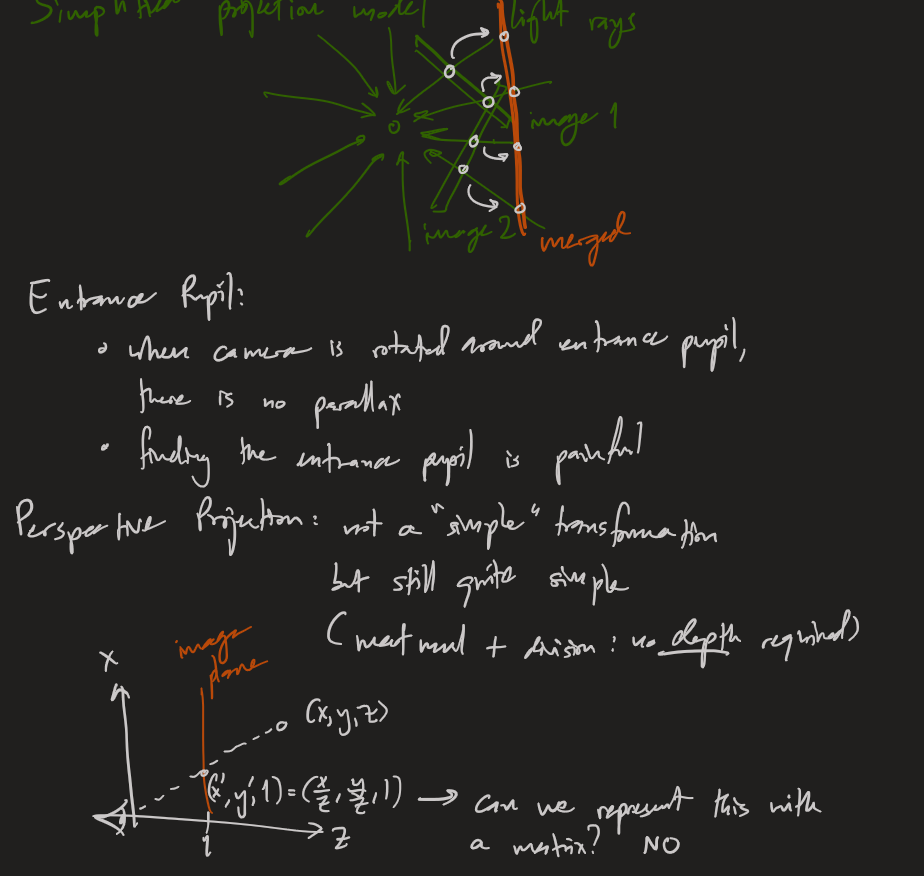 Simplified projection model
light rays
image 1
image 2
merged
Entrance Pupil:
when camera is rotated around entrance pupil,
there is no parallax
finding the entrance pupil is painful
Perspective Projection: not a "simple" transformation
but still quite simple
(mat mul + division: no depth required)
image
plane
x
(x,y,z)
(x',y',1) = (x/z, y/z, 1) → Can we represent this with
a matrix? NO
1
z